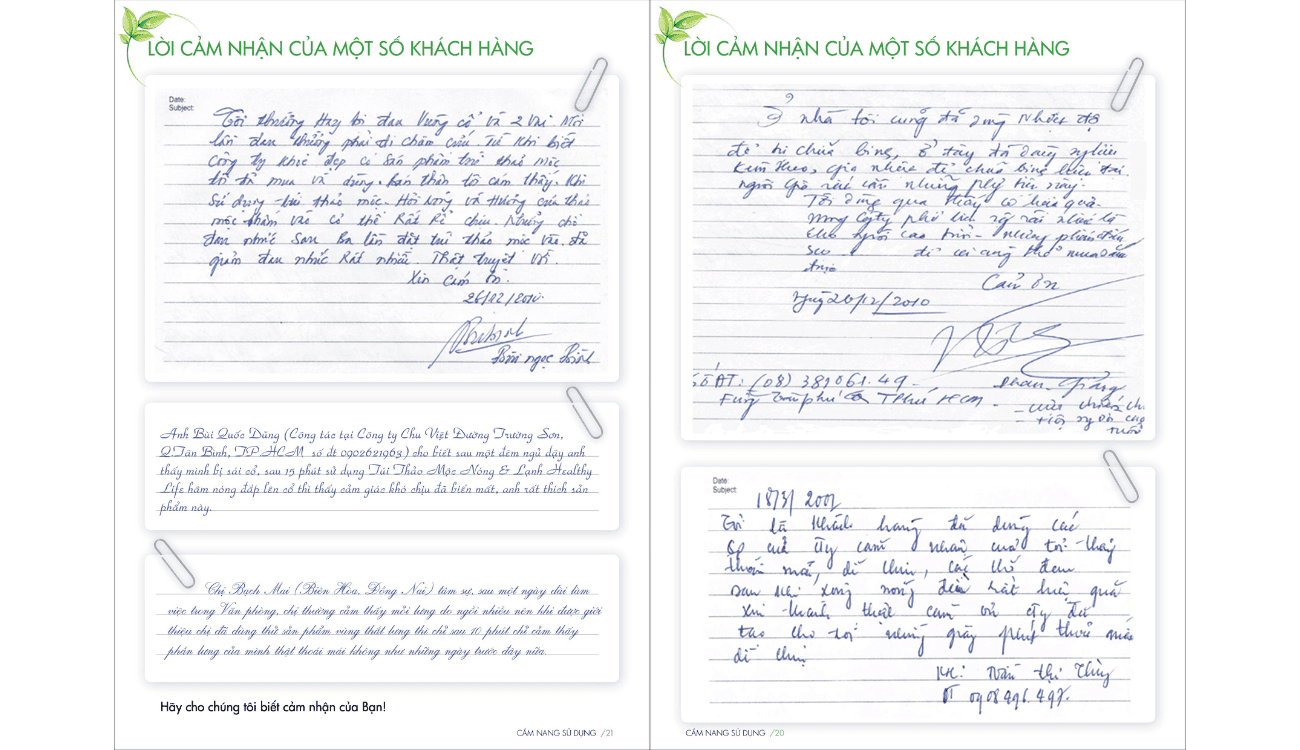 LỜI CẢM NHẬN CỦA MỘT SỐ KHÁCH HÀNG
Date:
Subject:
Tôi thường Hay bị đau Vướng cổ và 2 Vai Mỗi
lần đau thường phải đi châm cứu. Từ Khi biết
Công ty Khoẻ đẹp có Sản phẩm túi thảo mộc
tôi đã mua và dùng. bản thân tôi cảm thấy. Khi
Sử dụng túi thảo mộc. Hơi nóng và Hương của thảo
mộc thấm vào cơ thể Rất Rễ chịu. Những chỗ
đau nhức Sau Ba lần đặt túi thảo mộc vào. đã
giảm đau nhức Rất nhiều. Thật tuyệt vời.
Xin Cám ơn.
26/12/2010.
Bùi ngọc Bình
Anh Bùi Quốc Dũng (Công tác tại Công ty Chu Việt Đường Trường Sơn,
Q.Tân Bình, TP.HCM số đt 0902621963) cho biết sau một đêm ngủ dậy anh
thấy mình bị sái cổ, sau 15 phút sử dụng Túi Thảo Mộc Nóng & Lạnh Healthy
Life hâm nóng đắp lên cổ thì thấy cảm giác khó chịu đã biến mất, anh rất thích sản
phẩm này.
Chị Bạch Mai (Biên Hòa, Đồng Nai) tâm sự, sau một ngày dài làm
việc trong Văn phòng, chị thường cảm thấy mỏi lưng do ngồi nhiều nên khi được giới
thiệu chị đã dùng thử sản phẩm vùng thắt lưng thì chỉ sau 10 phút chị cảm thấy
phần lưng của mình thật thoải mái không như những ngày trước đây nữa.
Hãy cho chúng tôi biết cảm nhận của Bạn!
CẨM NANG SỬ DỤNG /21
LỜI CẢM NHẬN CỦA MỘT SỐ KHÁCH HÀNG
Ở nhà tôi cũng đã dùng Nhiệt độ
để trị chữa bệnh, ở đây đã dùng
người già rất cần những
Tôi dùng qua thấy có hiệu quả.
mong Cty phổ biến rộng rãi nhất là
cho người cao tuổi - những
để ai cũng thể mua
được
Cảm ơn
Ngày 26/12/2010
Số ĐT: (08) 381061.49 -
Date:
Subject:
18/3/2001
Tôi là Khách hàng đã dùng các
Sp của Cty cảm nhận của tôi thấy
thoải mái, dễ chịu,
sau khi xong nóng đều rất hiệu quả
Xin thành thật cảm ơn Cty đã
tạo cho tôi những giây phút thoải mái
dễ chịu
KH: Trần thị Thùy
ĐT 0908.496.497.
CẨM NANG SỬ DỤNG /20